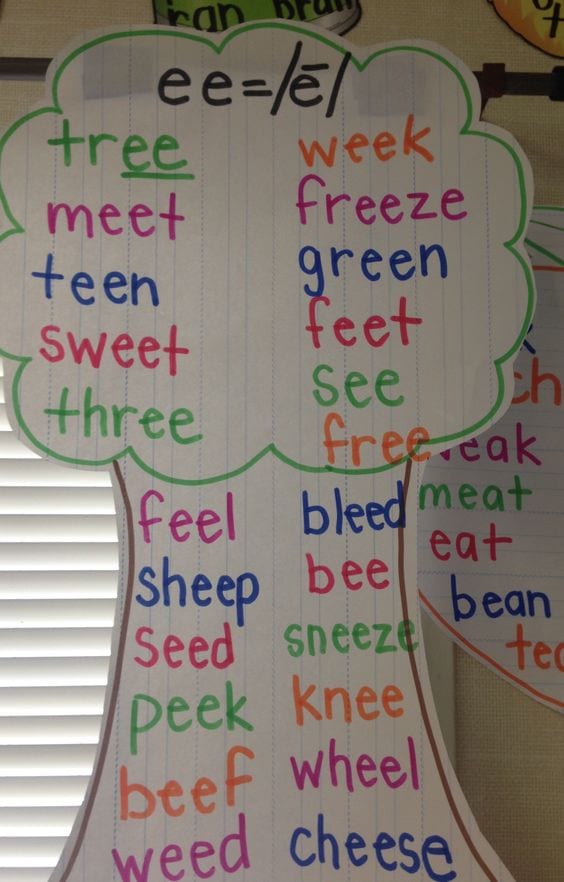 ee=/ē/
tree
meet
teen
sweet
three
week
freeze
green
feet
see
free
feel
sheep
seed
peek
beef
weed
bleed
bee
sneeze
knee
wheel
cheese
meat
eat
bean